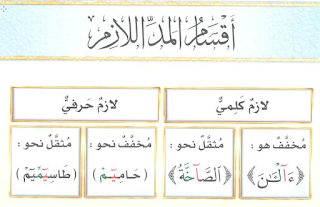 أَقْسَامُ الْمَدِّ اللَّازِمِ
لازمٌ كَلِميٌّ
لازمٌ حَرفيٌّ
مُخفَّفٌ هو :
﴿ ءَآلْـَٰٔنَ ﴾
مُثقلٌ نحو :
﴿ ٱلصَّآخَّةُ ﴾
مُخفَّفٌ نحو :
( حَامِيٓمْ )
مُثقلٌ نحو :
( طَاسِيٓمِّيٓمْ )